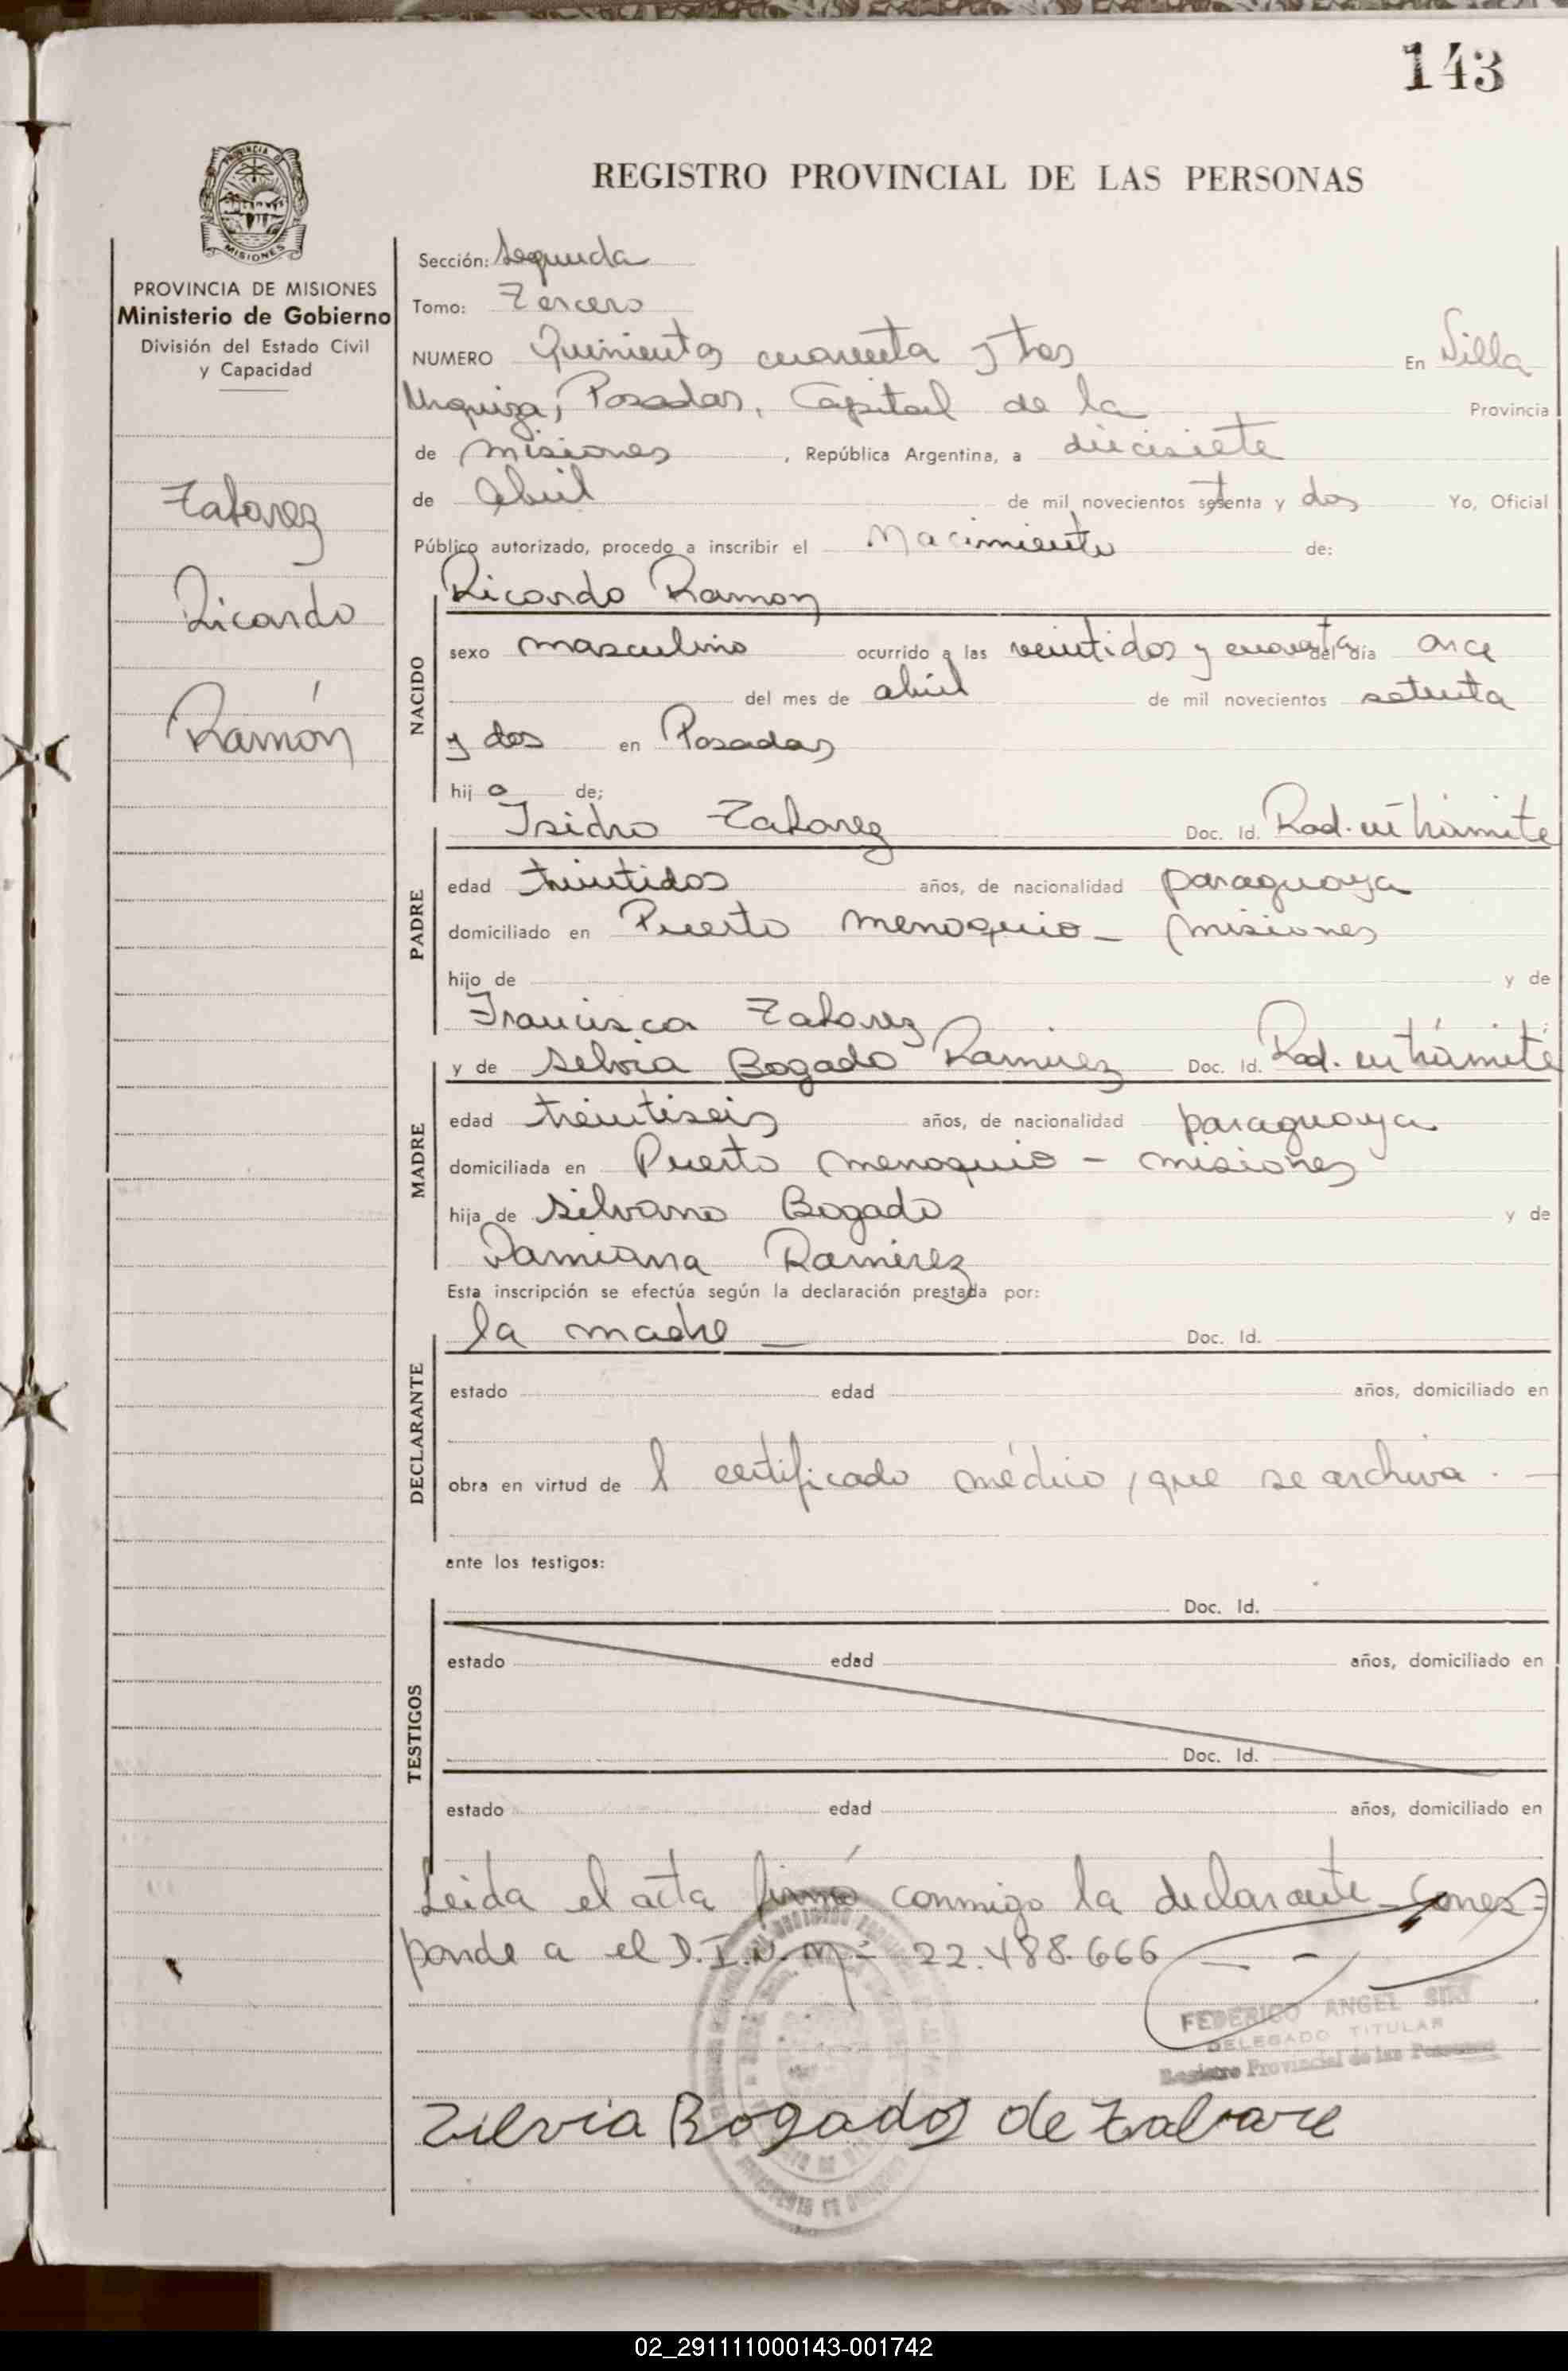 143
REGISTRO PROVINCIAL DE LAS PERSONAS
PROVINCIA DE MISIONES
Ministerio de Gobierno
División del Estado Civil
y Capacidad
Zabarez
Ricardo
Ramón
Sección: Segunda
Tomo: Tercero
NUMERO Quinientos cuarenta y tres En Villa
Urquiza, Posadas, Capital de la Provincia
de Misiones, República Argentina, a diecisiete
de Abril de mil novecientos setenta y dos Yo, Oficial
Público autorizado, procedo a inscribir el Nacimiento de:
NACIDO
Ricardo Ramon
sexo masculino ocurrido a las veintidos y cuarenta del día once
del mes de abril de mil novecientos setenta
y dos en Posadas
hijo de;
PADRE
Isidro Zabarez Doc. Id. Rad. en trámite
edad treintidos años, de nacionalidad paraguaya
domiciliado en Puerto Menoquio - Misiones
hijo de y de
Francisca Zabarez
MADRE
y de Selvia Bogado Ramirez Doc. Id. Rad. en trámite
edad treintiseis años, de nacionalidad paraguaya
domiciliada en Puerto Menoquio - Misiones
hija de Silvano Bogado y de
Damiana Ramirez
Esta inscripción se efectúa según la declaración prestada por:
DECLARANTE
la madre Doc. Id.
estado edad años, domiciliado en
obra en virtud de l certificado médico, que se archiva. -
ante los testigos:
TESTIGOS
Doc. Id.
estado edad años, domiciliado en
Doc. Id.
estado edad años, domiciliado en
Leida el acta firmó conmigo la declarante - Corres=
ponde a el D.I.N. Nº 22.488.666 -
FEDERICO ANGEL
DELEGADO TITULAR
Registro Provincial de las Personas
Zilvia Bogado de Zalvare
02_291111000143-001742